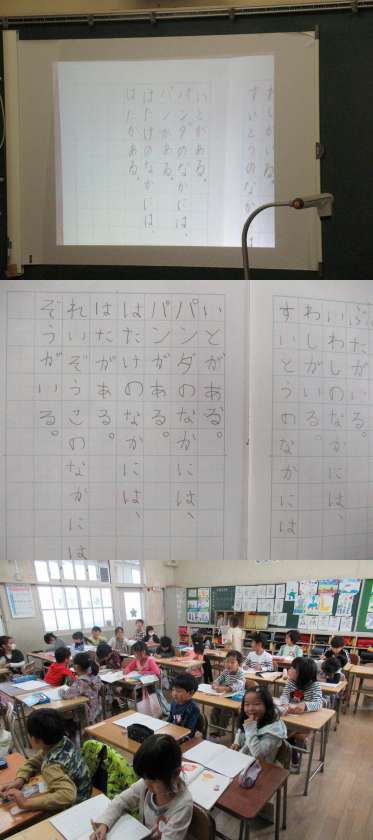 わしがいる。
すいとうのなか
いとがある。
パンダのなかには、
パンがある。
はたけのなかには、
はたがある。
ぶたがいる。
いわしのなかには、
わしがいる。
すいとうのなかには
いとがある。
パンダのなかには、
パンがある。
はたけのなかには、
はたがある。
れいぞうこのなかには
ぞうがいる。